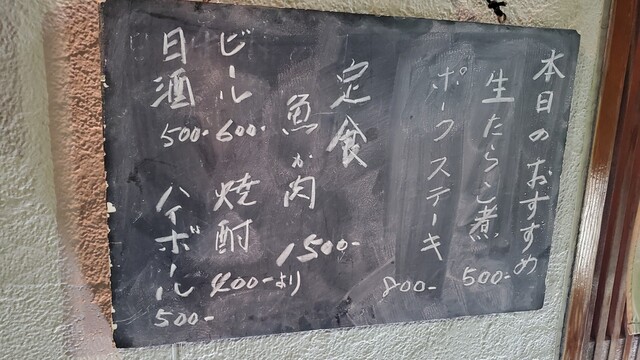 本日のおすすめ
生たらこ煮 500-
ポークステーキ 800-
定食
魚か肉 1500-
ビール 600-
焼酎 400-より
日酒 500-
ハイボール 500-